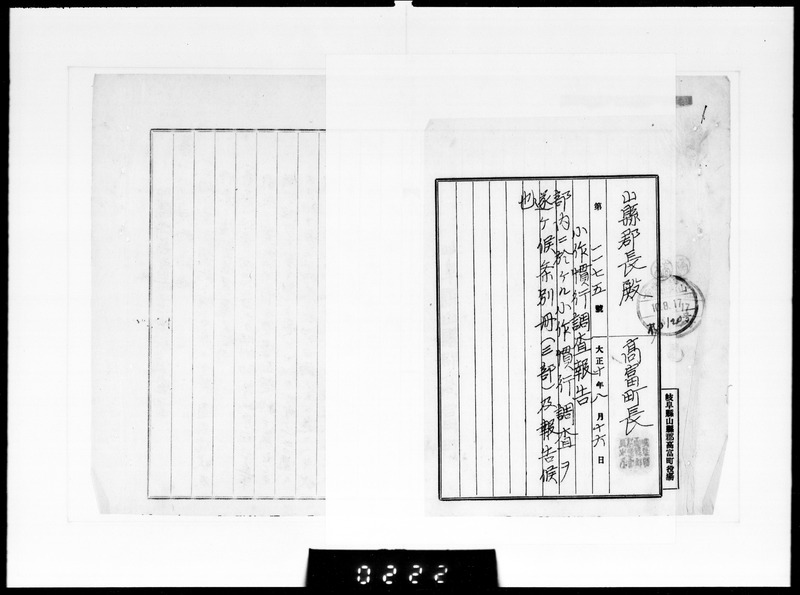 山縣郡長殿
高富町長
第一二七五號
大正十年八月十六日
小作慣行調査報告
部内ニ於ケル小作慣行調査ヲ
遂ケ候条別冊(三部)及報告候
也
岐阜縣山縣郡高富町役場
10.8.17
0222